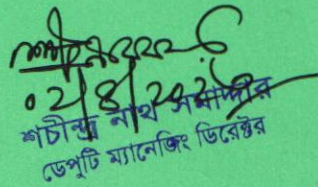 ০২/৪/২০২৬
শচীন্দ্র নাথ সমাদ্দার
ডেপুটি ম্যানেজিং ডিরেক্টর